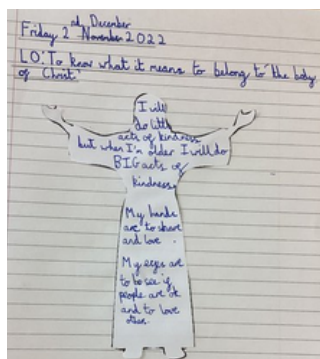 nd December
Friday 2 November 2022
LO: To know what it means to belong to 'the body
of Christ'
I will
do little
acts of kindness
but when I'm older I will do
BIG acts of
kindness
My hands
are to share
and love.
My eyes are
to be see if
people are ok
and to love